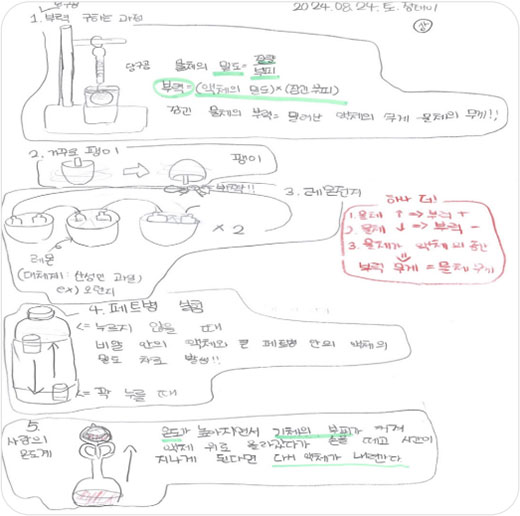 2024.08.24.토.
1. 부력 구하는 과정
상
탱구공 물체의 밀도= 질량
부피
부력=(액체의 밀도)×(잠긴 부피)
잠긴 물체의 부력= 밀어난 액체의 무게 물체의 무게!!
2. 거꾸로 팽이
팽이
바닥!!
3. 레몬전지
×2
레몬
(대체제: 산성인 과일)
ex) 오렌지
하나 더!
1. 물체 ↑ => 부력 +
2. 물체 ↓ => 부력 -
3. 물체가 액체의 중간
부력 무게 = 물체 무게
4. 페트병
<= 누르지 않을 때
비닐 안의 액체와 큰 페트병 안의 액체의
밀도 차로 발생!!
<= 꽉 누를 때
5.
사랑의
온도계
온도가 높아지면서 기체의 부피가 커져
액체 위로 올라갔다가 손을 떼고 시간이
지나게 된다면 다시 액체가 내려간다